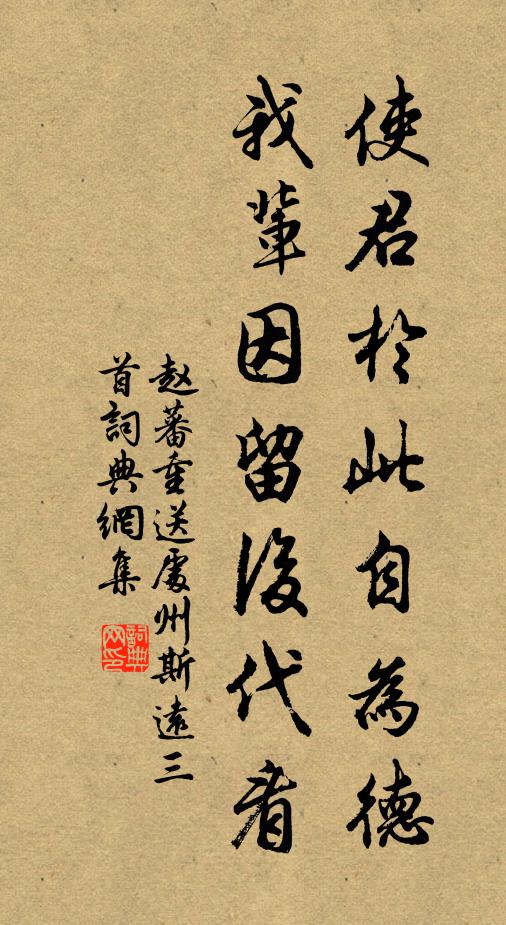 使君於此自為德
我輩因留後代看
赵蕃重送處州斯遠三
首詞典網集
詞典
网印